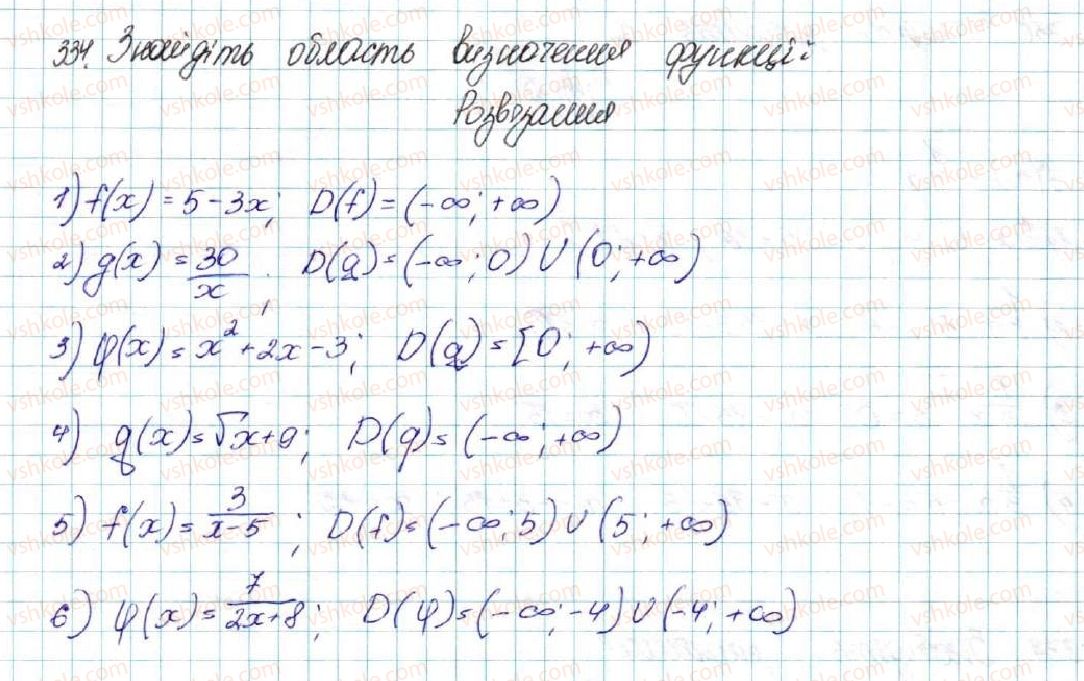 334. Знайдіть область визначення функцій
Розв'язання
1) f(x) = 5 - 3x; D(f) = (-∞; +∞)
2) g(x) = 30/x; D(g) = (-∞; 0) U (0; +∞)
3) φ(x) = x² + 2x - 3; D(g) = [0; +∞)
4) g(x) = √x + 9; D(g) = (-∞; +∞)
5) f(x) = 3/(x-5); D(f) = (-∞; 5) U (5; +∞)
6) φ(x) = 7/(2x+8); D(φ) = (-∞; -4) U (-4; +∞)